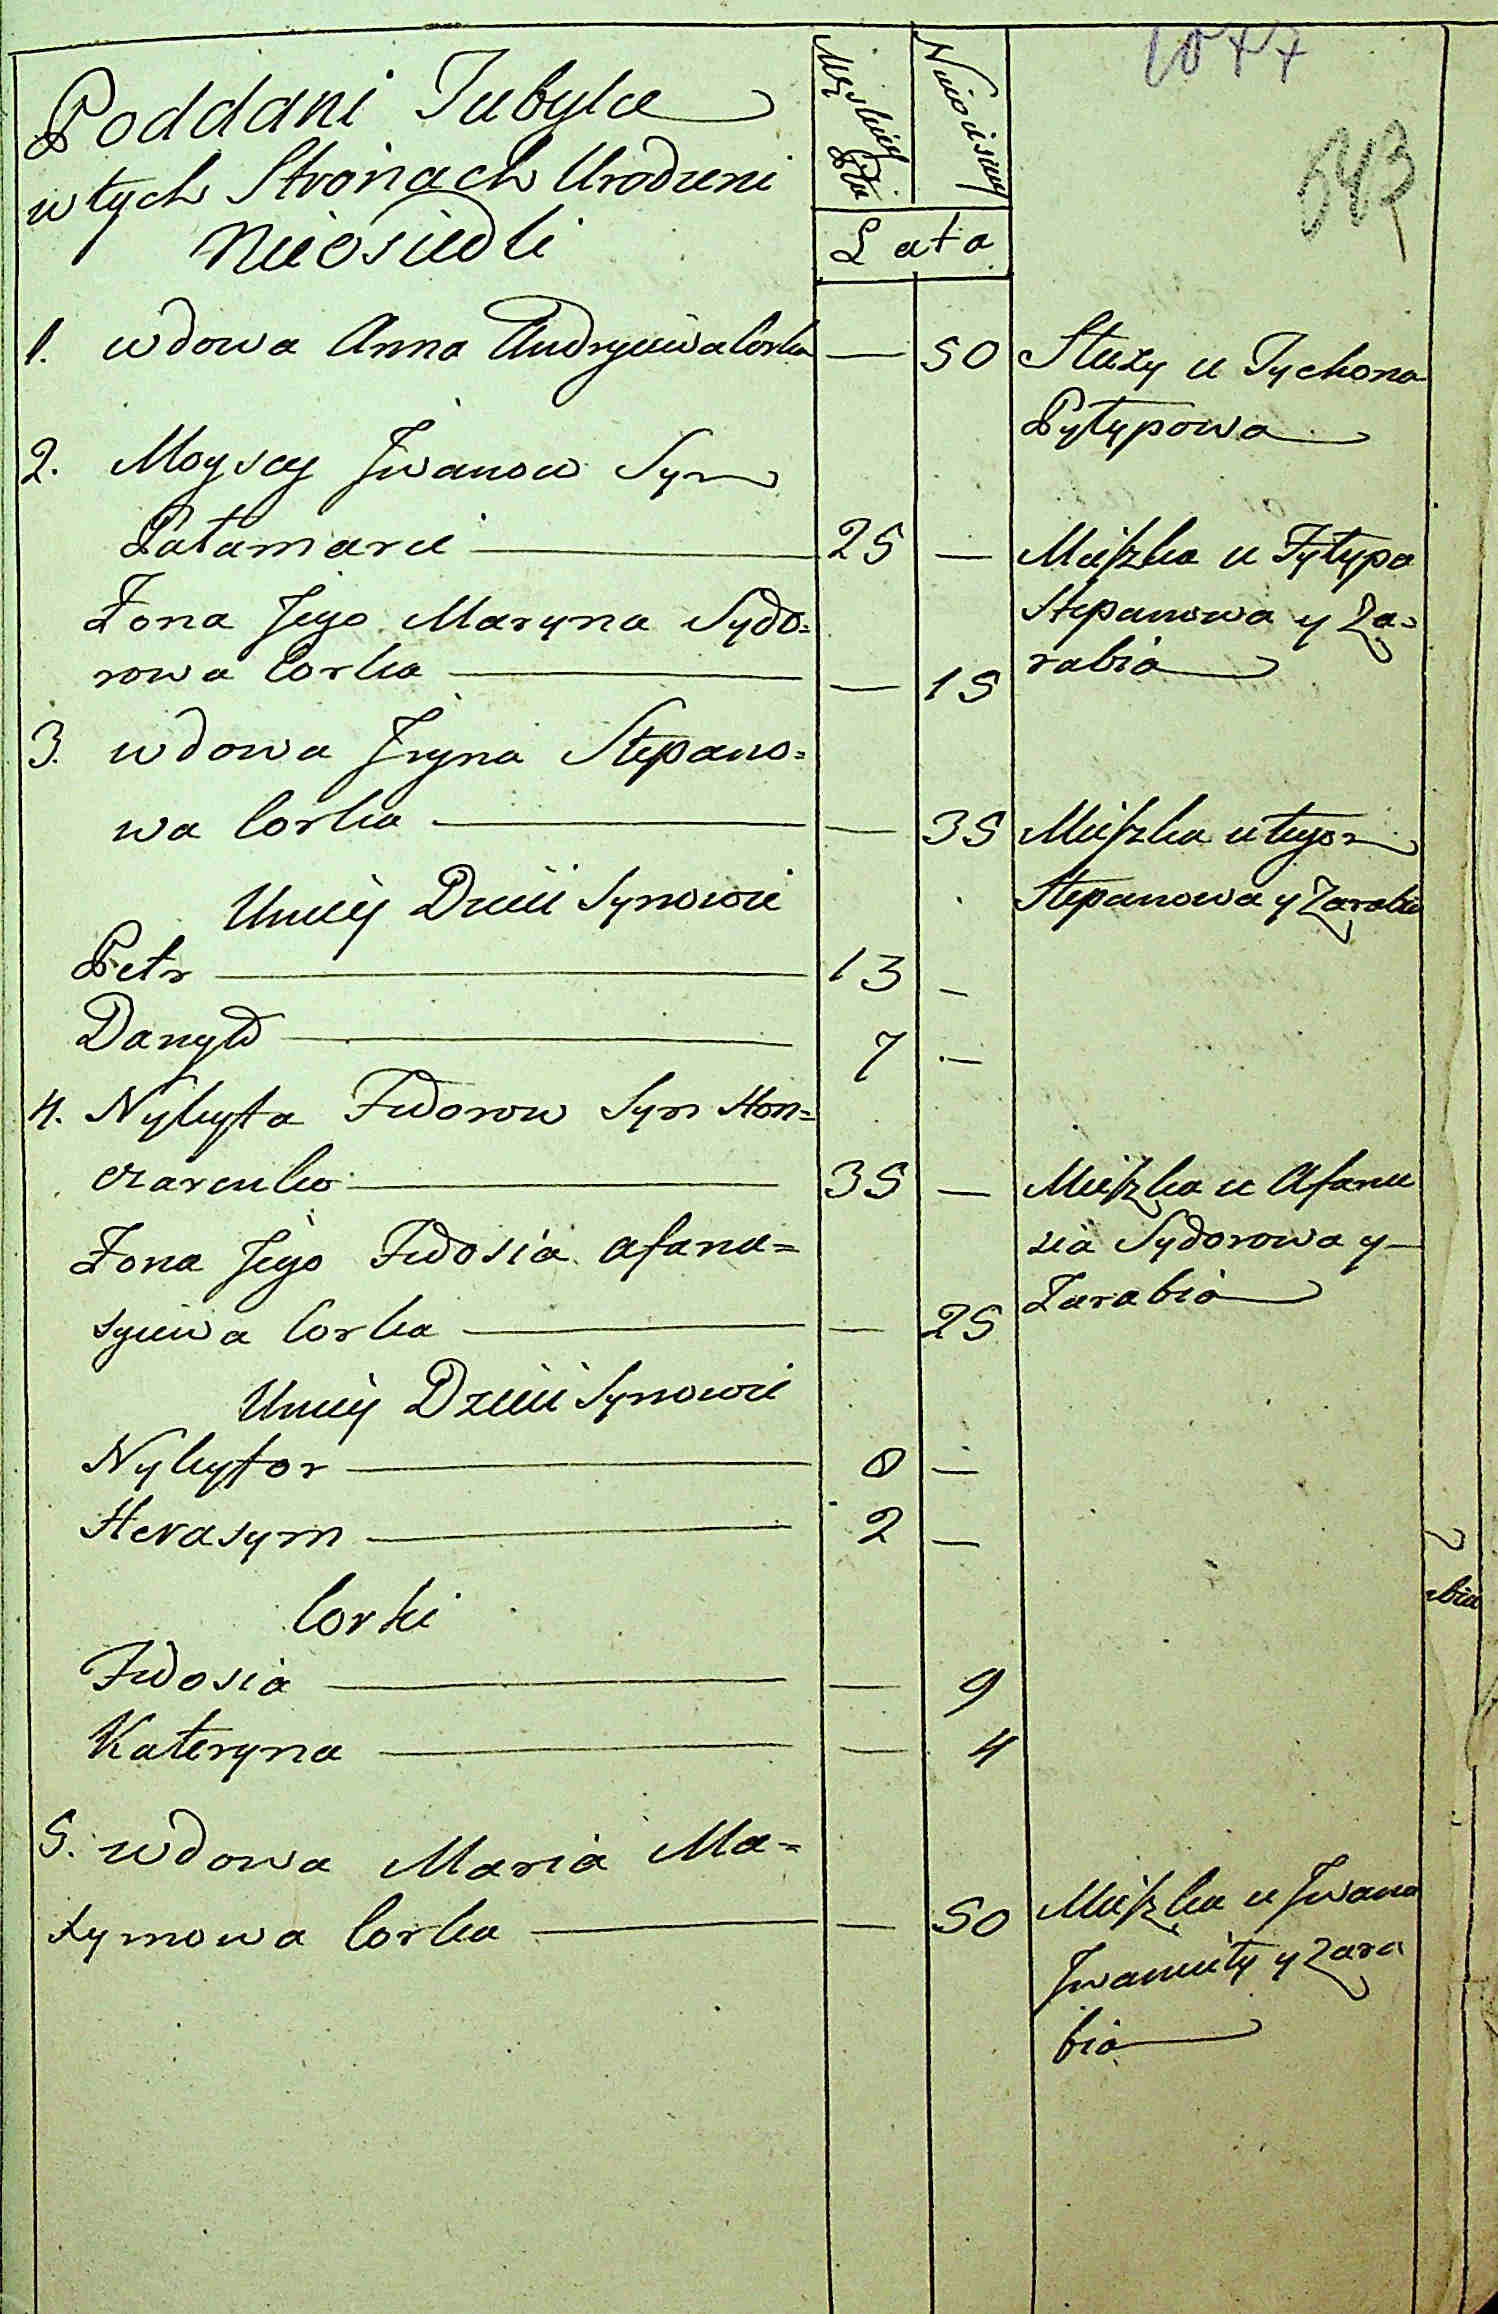 1077
543
Poddani Tubylce
w tych Stronach Urodzeni
Nieosiedli
Męskiey Płci
Niewiesciey
Lata
1. wdowa Anna Andryiewa Corka — 50 Służy u Tychona
Pyłypowa
2. Moysey Jwanow Syn
Pałamare — 25 — Mieszka u Fyłypa
Żona Jego Maryna Sydo=
Stepanowa y Za=
rowa Corka — — 15 rabia
3. wdowa Jryna Stepano=
wa Corka — — 35 Mieszka u tegoz
Stepanowa y Zarabia
U niey Dzieci Synowie
Petr — 13 —
Danyło — 7 —
4. Nykyta Fedorow Syn Hon=
czarenko — 35 — Mieszka u Afana
Żona Jego Fedosia Afana=
zia Sydorowa y
syiewa Corka — — 25 Zarabia
U niey Dzieci Synowie
Nykyfor — 8 —
Herasym — 2 —
Corki
Fedosia — — 9
Kateryna — — 4
5. wdowa Maria Ma=
xymowa Corka — — 50 Mieszka u Jwana
Jwaniuty y Zara
bia
bia